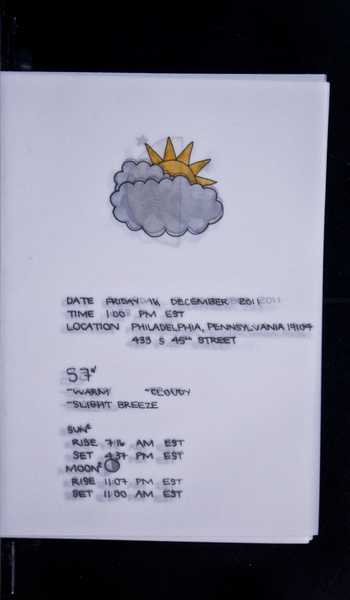 DATE FRIDAY 16, DECEMBER 2011
TIME 1:00 PM EST
LOCATION PHILADELPHIA, PENNSYLVANIA 19104
433 S 45TH STREET
57°
-WARM -CLOUDY
-SLIGHT BREEZE
SUN²
RISE 7:16 AM EST
SET 4:37 PM EST
MOON²
RISE 11:07 PM EST
SET 11:00 AM EST